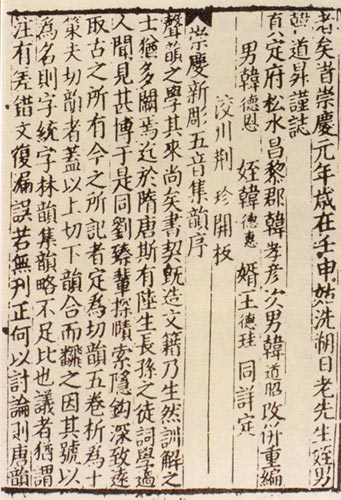 者矣旹崇慶元年歲在壬申姑洗朔日老先生姪男
韓道昇謹誌
真定府松水昌黎郡韓孝彥次男韓道昭攺併重編
男韓德恩　姪韓德惠　婿王德珪　同詳定
洨川荆　珍開板
崇慶新彫五音集韻序
聲韻之學其來尚矣書契旣造文籍乃生然訓解之
士猶多闕焉迄於隋唐斯有陸生長孫之徒詞學過
人聞見甚博于是同劉臻輩探賾索隱鈎深致遠
取古之所有今之所記者定為切韻五卷析為十
策夫切韻者蓋以上切下韻合而翻之因其號以
為名則字統字林韻集韻略不足比也議者猶謂
注有差錯文復漏誤若無刋正何以討論則唐韻